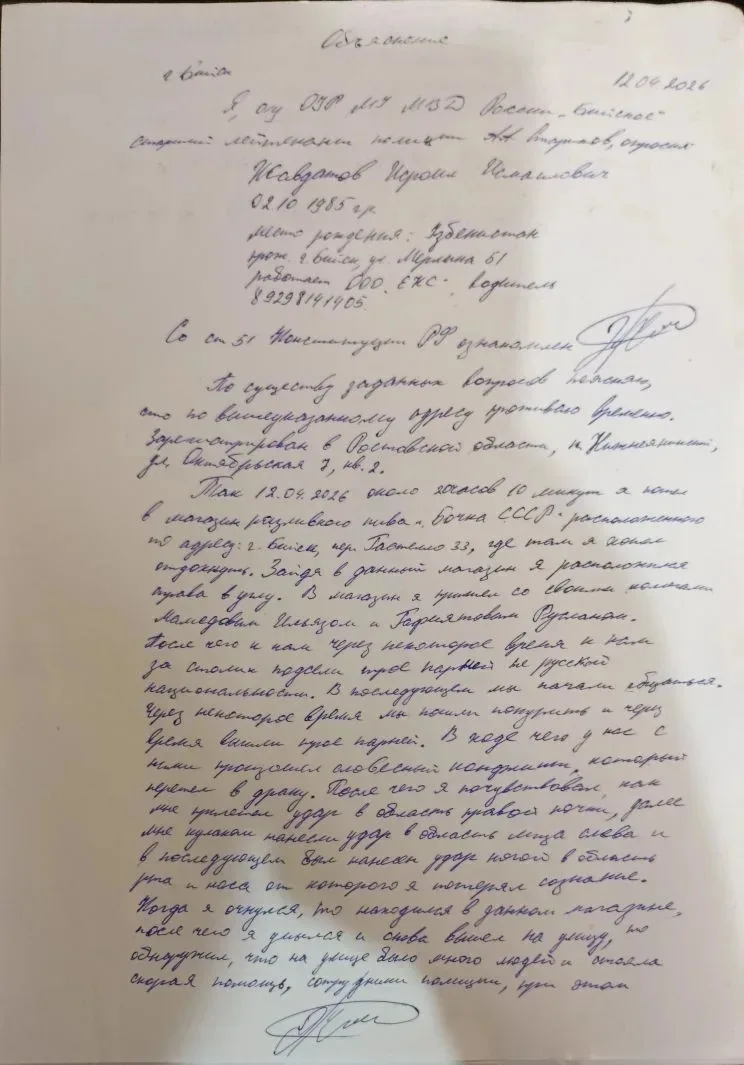 Объяснение
г. Бийск 12.04.2026
Я, о/у ОУР МУ МВД России „Бийское"
старший лейтенант полиции А.А. опросил
Жавдатов Исроил Исмаилович
02.10.1985 г.р.
место рождения: Узбекистан
прож. г. Бийск, ул. Мерлина 61
работает ООО „ЕКС", водитель
89298141405
Со ст 51 Конституции РФ ознакомлен
По существу заданных вопросов поясняю,
что по вышеуказанному адресу проживаю временно.
Зарегистрирован в Ростовской области,
ул. Октябрьская 7, кв. 2.
Так 12.04.2026 около 20 часов 10 минут я
в магазин разливного пива „Бочка СССР" расположенного
по адресу: г. Бийск, пер. Гастелло 33, где там я хотел
отдохнуть. Зайдя в данный магазин я расположился
права в углу. В магазин я пришел со своими
Мамедовым Ильязом и Русланом.
После чего к нам через некоторое время к нам
за столик подсели трое парней не русской
национальности. В последующем мы начали общаться.
Через некоторое время мы пошли покурить и через
время вышли трое парней. В ходе чего у нас с
ними произошел словесный конфликт, который
перетек в драку. После чего я почувствовал, как
мне прилетел удар в область правой почки, далее
мне кулаком нанесли удар в область лица слева и
в последующем был нанесен удар ногой в область
рта и носа от которого я потерял сознание.
Когда я очнулся, то находился в данном магазине,
после чего я умылся и снова вышел на улицу, то
обнаружил, что на улице было много людей и стояла
скорая помощь, сотрудники полиции, при этом